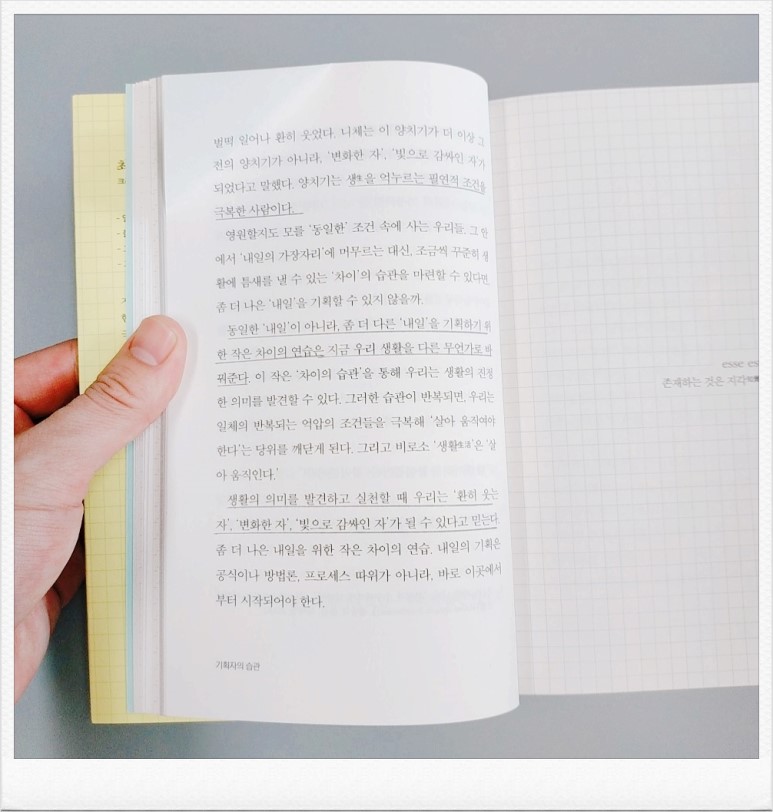 벌떡 일어나 환히 웃었다. 니체는 이 양치기가 더 이상 그
전의 양치기가 아니라, '변화한 자', '빛으로 감싸인 자'가
되었다고 말했다. 양치기는 생生을 억누르는 필연적 조건을
극복한 사람이다.
영원할지도 모를 '동일한' 조건 속에 사는 우리들. 그 안
에서 '내일의 가장자리'에 머무르는 대신, 조금씩 꾸준히 생
활에 틈새를 낼 수 있는 '차이'의 습관을 마련할 수 있다면,
좀 더 나은 '내일'을 기획할 수 있지 않을까.
동일한 '내일'이 아니라, 좀 더 다른 '내일'을 기획하기 위
한 작은 차이의 연습은 지금 우리 생활을 다른 무언가로 바
꿔준다. 이 작은 '차이의 습관'을 통해 우리는 생활의 진정
한 의미를 발견할 수 있다. 그러한 습관이 반복되면, 우리는
일체의 반복되는 억압의 조건들을 극복해 '살아 움직여야
한다'는 당위를 깨닫게 된다. 그리고 비로소 '생활生活'은 '살
아 움직인다.'
생활의 의미를 발견하고 실천할 때 우리는 '환히 웃는
자', '변화한 자', '빛으로 감싸인 자'가 될 수 있다고 믿는다.
좀 더 나은 내일을 위한 작은 차이의 연습. 내일의 기획은
공식이나 방법론, 프로세스 따위가 아니라, 바로 이곳에서
부터 시작되어야 한다.
기획자의 습관
esse es
존재하는 것은 지각